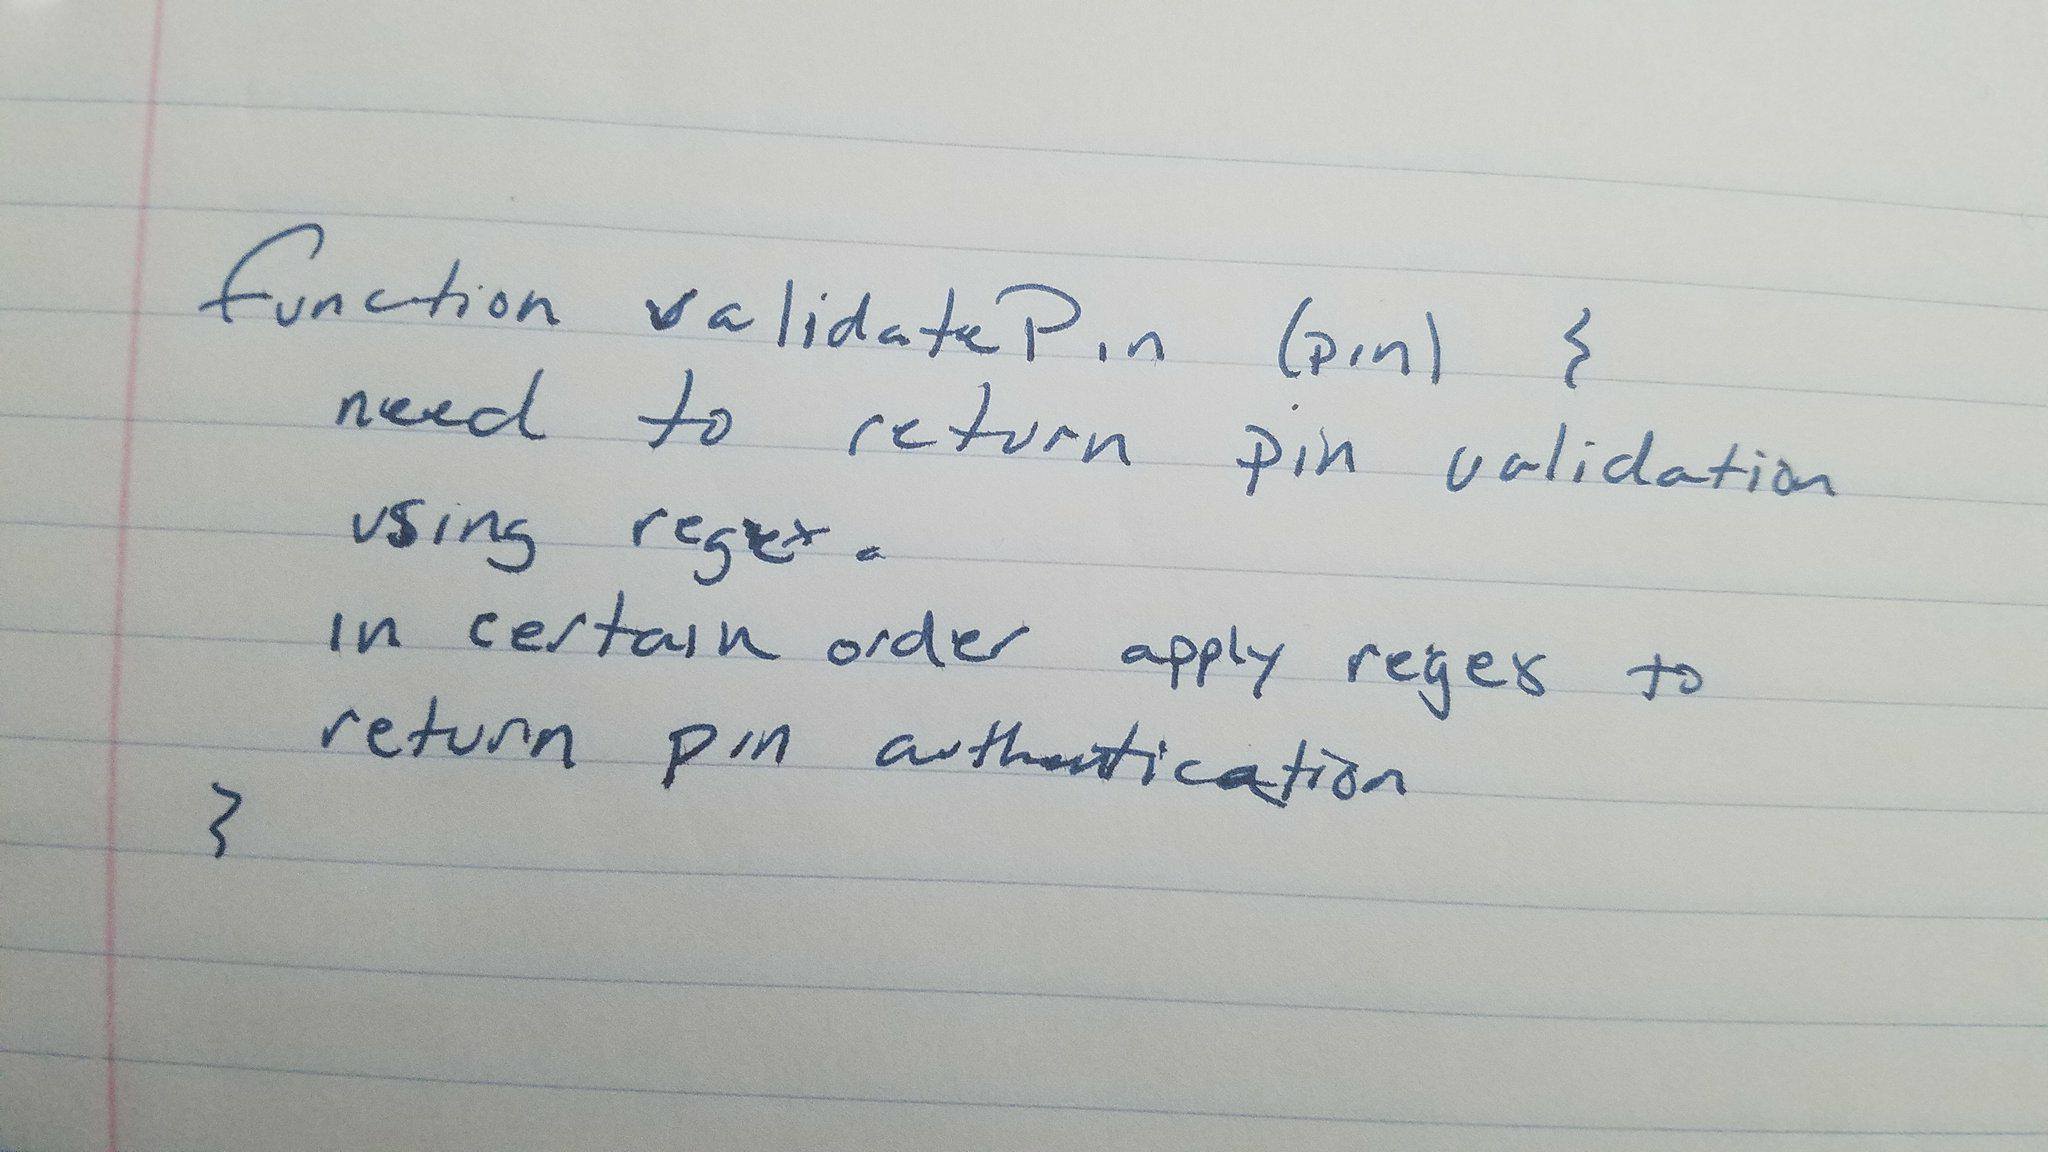 function validatePin (pin) {
need to return pin validation
using regex.
in certain order apply regex to
return pin authentication
}